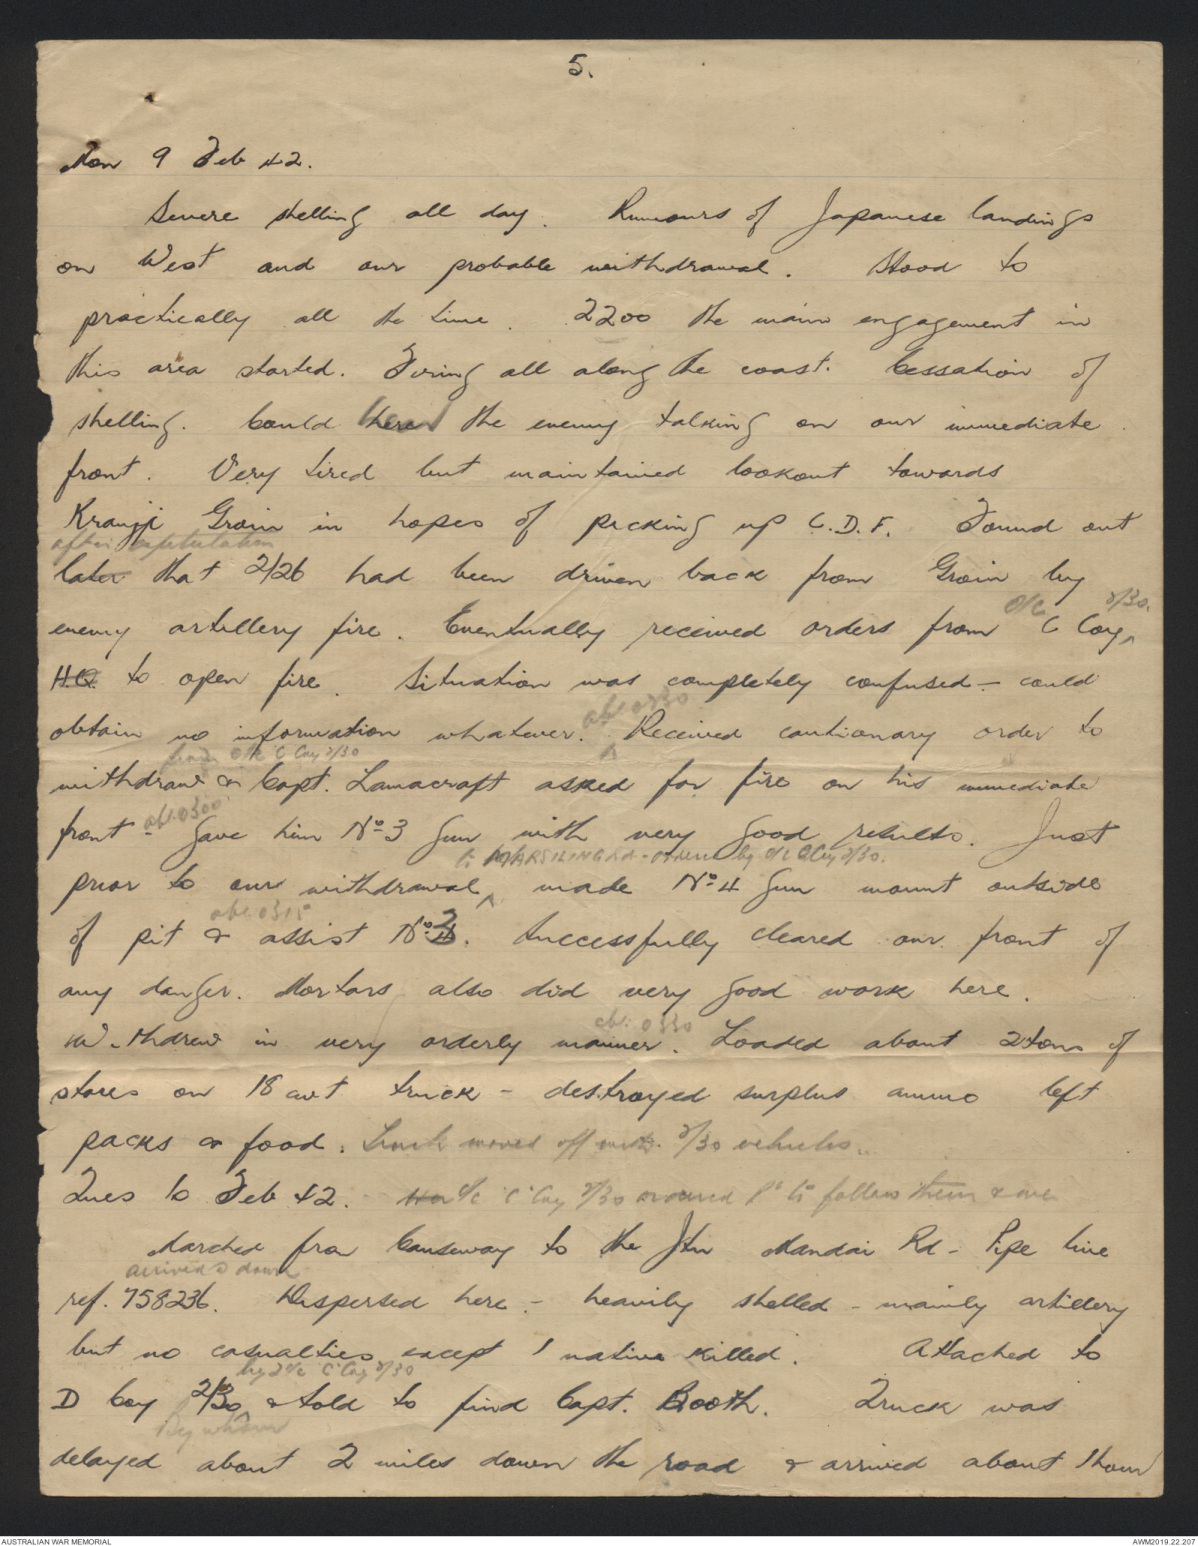 5.
Mon 9 Feb 42.
Severe shelling all day. Rumours of Japanese landings
on West and our probable withdrawal. Stood to
practically all the time. 2200 the main engagement in
this area started. Firing all along the coast. Cessation of
shelling. Could hear the enemy talking on our immediate
front. Very tired but maintained lookout towards
Kranji Groin in hopes of picking up C.D.F. Found out
after capitulation
later that 2/26 had been driven back from Groin by
O/C 2/30.
enemy artillery fire. Eventually received orders from C Coy
H.Q. to open fire. Situation was completely confused - could
abt 0230
obtain no information whatever. Received cautionary order to
from O/C "C" Coy 2/30
withdraw & Capt. Lamacraft asked for fire on his immediate
abt 0300
front - Gave him No 3 Gun with very good results. Just
to MARSILING Rd - ordered by O/C C Coy 2/30.
prior to our withdrawal made No 4 Gun mount outside
abt 0315
of pit & assist No 3. Successfully cleared our front of
any danger. Mortars also did very good work here.
abt 0330
Withdrew in very orderly manner. Loaded about 2 tons of
stores on 18 cwt truck - destroyed surplus ammo left
packs & food. Truck moved off with 2/30 vehicles.
Tues 10 Feb 42. O/C "C" Coy 2/30 ordered Pl to follow them & we
Marched from Causeway to the Jtn Mandai Rd - Pipe line
arrived & down
ref. 758236. Dispersed here - heavily shelled - mainly artillery
but no casualties except 1 native killed. Attached to
by 2/c "C" Coy 2/30
D Coy 2/30 & told to find Capt. Booth. Truck was
By whom
delayed about 2 miles down the road & arrived about 1 hour
AUSTRALIAN WAR MEMORIAL
AWM2019.22.207